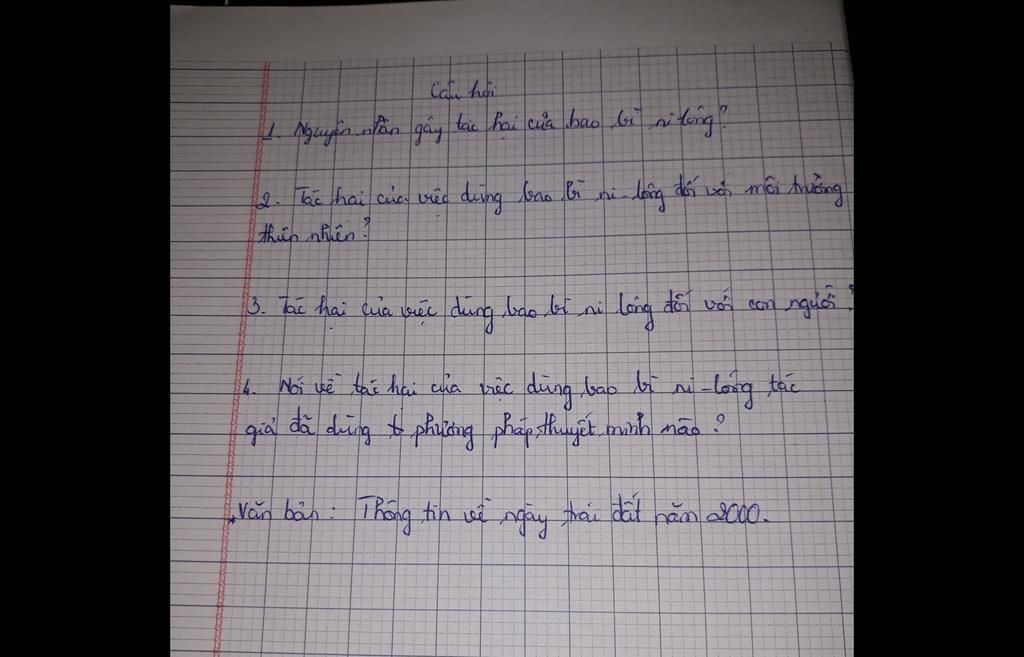 Câu hỏi
1. Nguyên nhân gây tác hại của bao bì ni lông?
2. Tác hại của việc dùng bao bì ni-lông đối với môi trường
thiên nhiên?
3. Tác hại của việc dùng bao bì ni lông đối với con người?
4. Nói về tác hại của việc dùng bao bì ni-lông tác
giả đã dùng phương pháp thuyết minh nào?
* Văn bản: Thông tin về ngày trái đất năm 2000.